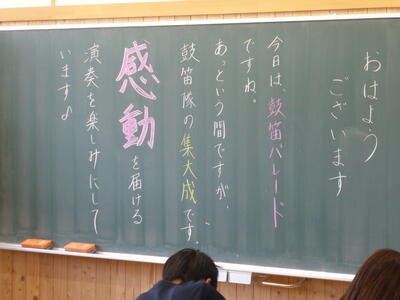 おはよう
ございます
今日は、鼓笛パレード
ですね。
あっという間ですが、
鼓笛隊の集大成です。
感動を届ける
演奏を楽しみにして
います♪